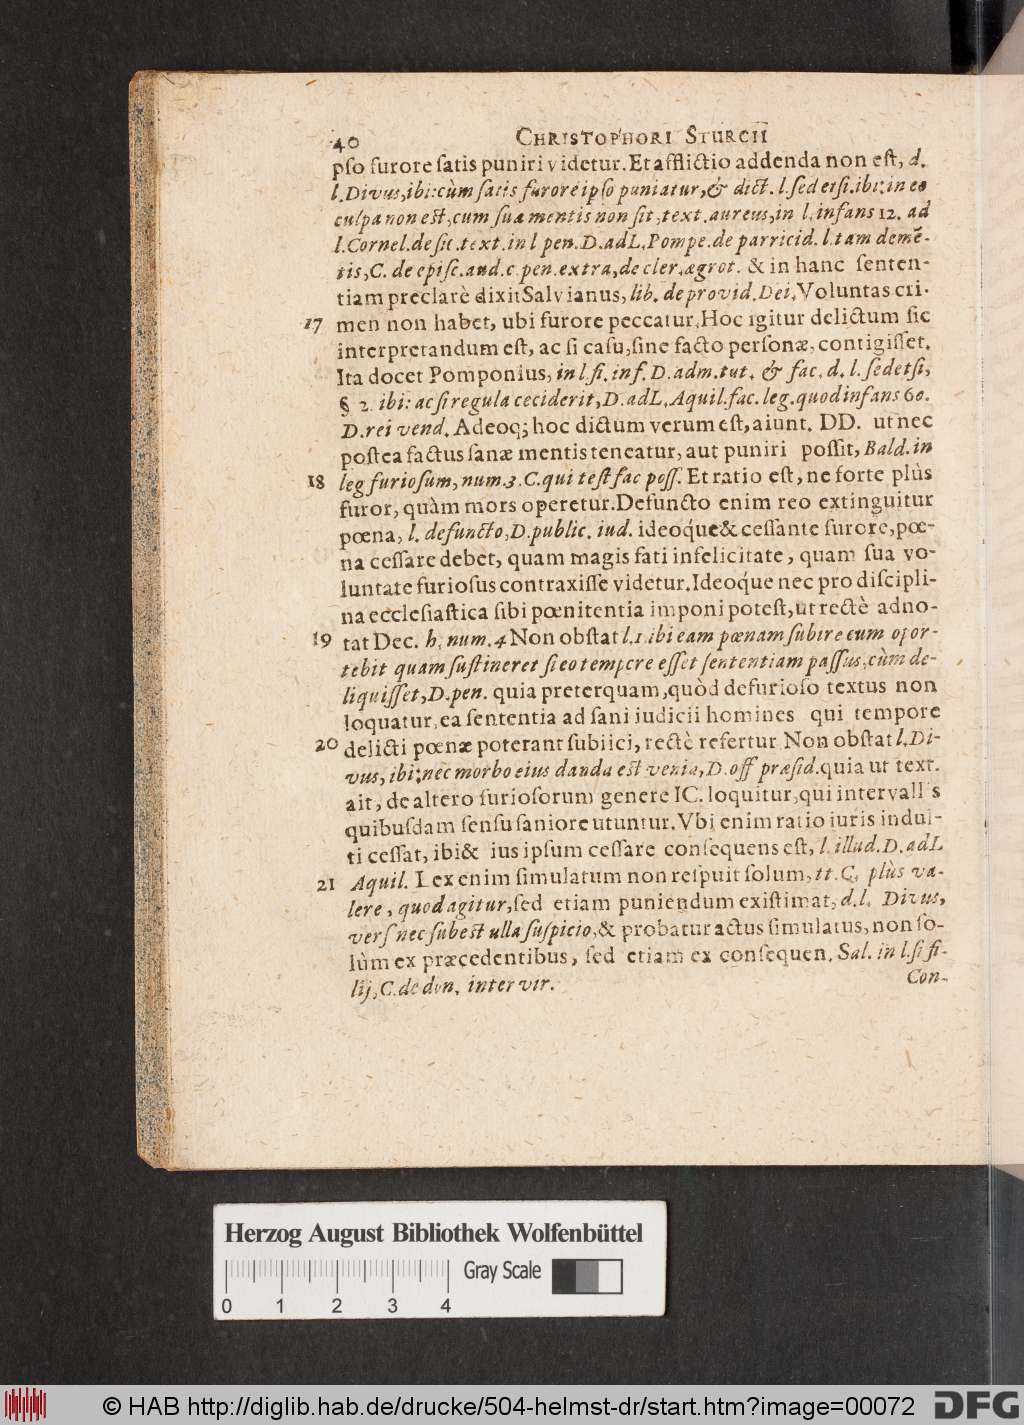 40 CHRISTOPHORI STURCII
pso furore satis puniri videtur. Et afflictio addenda non est, d.
l. Divus, ibi: cùm satis furore ipso puniatur, & dict. l. sed etsi. ibi: in eo
culpa non est, cum sua mentis non sit, text. aureus, in l. infans 12. ad
l. Cornel. de sic. text. in l pen. D. ad L. Pompe. de parricid. l. tam demẽ-
tis, C. de episc. aud. c. pen. extra, de cler. ægrot. & in hanc senten-
tiam preclarè dixit Salvianus, lib. de provid. Dei. Voluntas cri-
17 men non habet, ubi furore peccatur. Hoc igitur delictum sic
interpretandum est, ac si casu, sine facto personæ, contigisset.
Ita docet Pomponius, in l. si. inf. D. adm. tut. & fac. d. l. sed etsi,
§ 2. ibi: ac si regula ceciderit, D. ad L. Aquil. fac. leg. quod infans 60.
D. rei vend. Adeoq; hoc dictum verum est, aiunt. DD. ut nec
postea factus sanæ mentis teneatur, aut puniri possit, Bald. in
18 leg furiosum, num. 3. C. qui test fac poss. Et ratio est, ne forte plùs
furor, quàm mors operetur. Defuncto enim reo extinguitur
pœna, l. defuncto, D. public. iud. ideoque & cessante furore, pœ-
na cessare debet, quam magis fati infelicitate, quam sua vo-
luntate furiosus contraxisse videtur. Ideoque nec pro discipli-
na ecclesiastica sibi pœnitentia imponi potest, ut rectè adno-
19 tat Dec. h. num. 4 Non obstat l. 1. ibi eam pœnam subire eum opor-
tebit quam sustineret si eo tempore esset sententiam passus, cùm de-
liquisset, D. pen. quia preterquam, quòd de furioso textus non
loquatur, ea sententia ad sani iudicii homines qui tempore
20 delicti pœnæ poterant subiici, rectè refertur Non obstat l. Di-
vus, ibi: nec morbo eius danda est venia, D. off præsid. quia ut text.
ait, de altero furiosorum genere IC. loquitur, qui intervallis
quibusdam sensu saniore utuntur. Vbi enim ratio iuris indul-
ti cessat, ibi & ius ipsum cessare consequens est, l. illud. D. ad L
21 Aquil. Lex enim simulatum non respuit solum, tt. C. plùs va-
lere, quod agitur, sed etiam puniendum existimat, d. l. Divus,
vers nec subest ulla suspicio, & probatur actus simulatus, non so-
lùm ex præcedentibus, sed etiam ex consequen. Sal. in l. si fi-
lij, C. de don. inter vir.
Con-
Herzog August Bibliothek Wolfenbüttel
Gray Scale
0 1 2 3 4
© HAB http://diglib.hab.de/drucke/504-helmst-dr/start.htm?image=00072
DFG